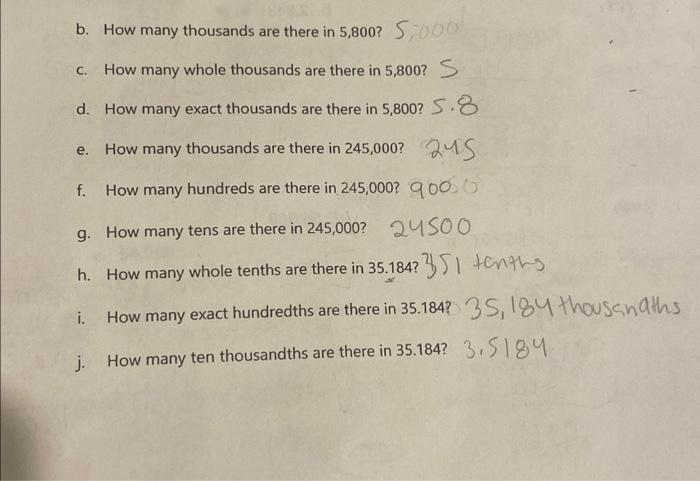 b. How many thousands are there in 5,800? 5,000
c. How many whole thousands are there in 5,800? 5
d. How many exact thousands are there in 5,800? 5.8
e. How many thousands are there in 245,000? 245
f. How many hundreds are there in 245,000? 900
g. How many tens are there in 245,000? 24500
h. How many whole tenths are there in 35.184? 351 tenths
i. How many exact hundredths are there in 35.184? 35,184 thousandths
j. How many ten thousandths are there in 35.184? 3.5184